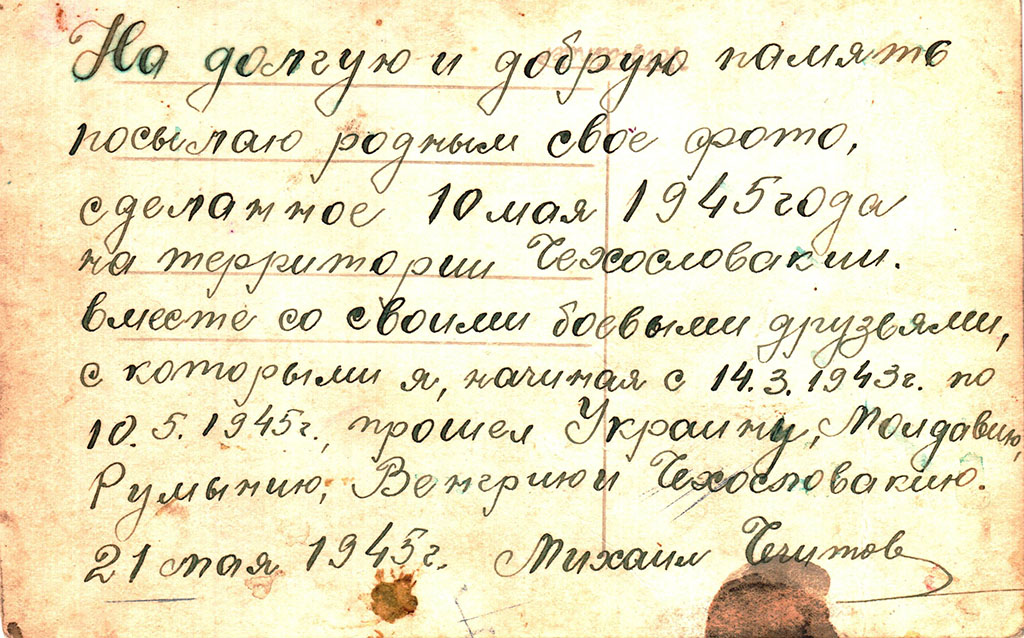 На долгую и добрую память
посылаю родным свое фото,
сделанное 10 мая 1945 года
на территории Чехословакии.
вместе со своими боевыми друзьями,
с которыми я, начиная с 14.3.1943г. по
10.5.1945г., прошел Украину, Молдавию,
Румынию, Венгрию и Чехословакию.
21 мая 1945г. Михаил